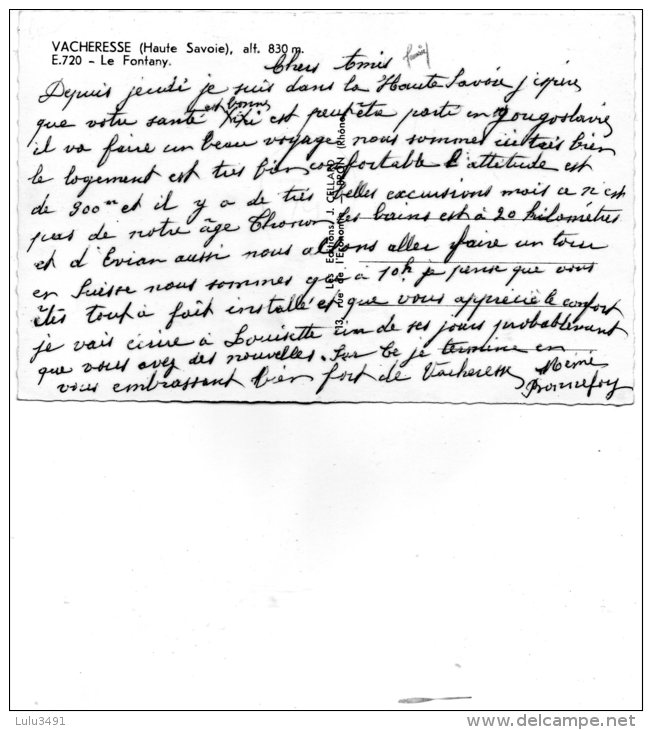 VACHERESSE (Haute Savoie), alt. 830 m.
E.720 - Le Fontany.
Chers Amis
Depuis jeudi je suis dans la Haute Savoie j'espère
que votre santé est bonne est peut êtr parti en Yougoslavie
il va faire un beau voyage nous sommes très bien
le logement est tres bien confortable l'attitude est
de 900m et il y a de très belles excursions mais ce n'est
pas de notre âge Thonon les bains est à 20 kilomètres
et d'Evian aussi nous allons aller faire un tour
en Suisse nous sommes à 10h je pense que vous
êtes tout à fait installé et que vous apprécié le confort
je vais écrire à Louisette un de ses jours probablement
que vous avez des nouvelles. Sur ce je termine en
vous embrassant bien fort de Vacheresse
Mémé
Bonnefoy
Les Editions J. CELLARD
213, rue de l'Economie BRON (Rhône)
Lulu3491
www.delcampe.net